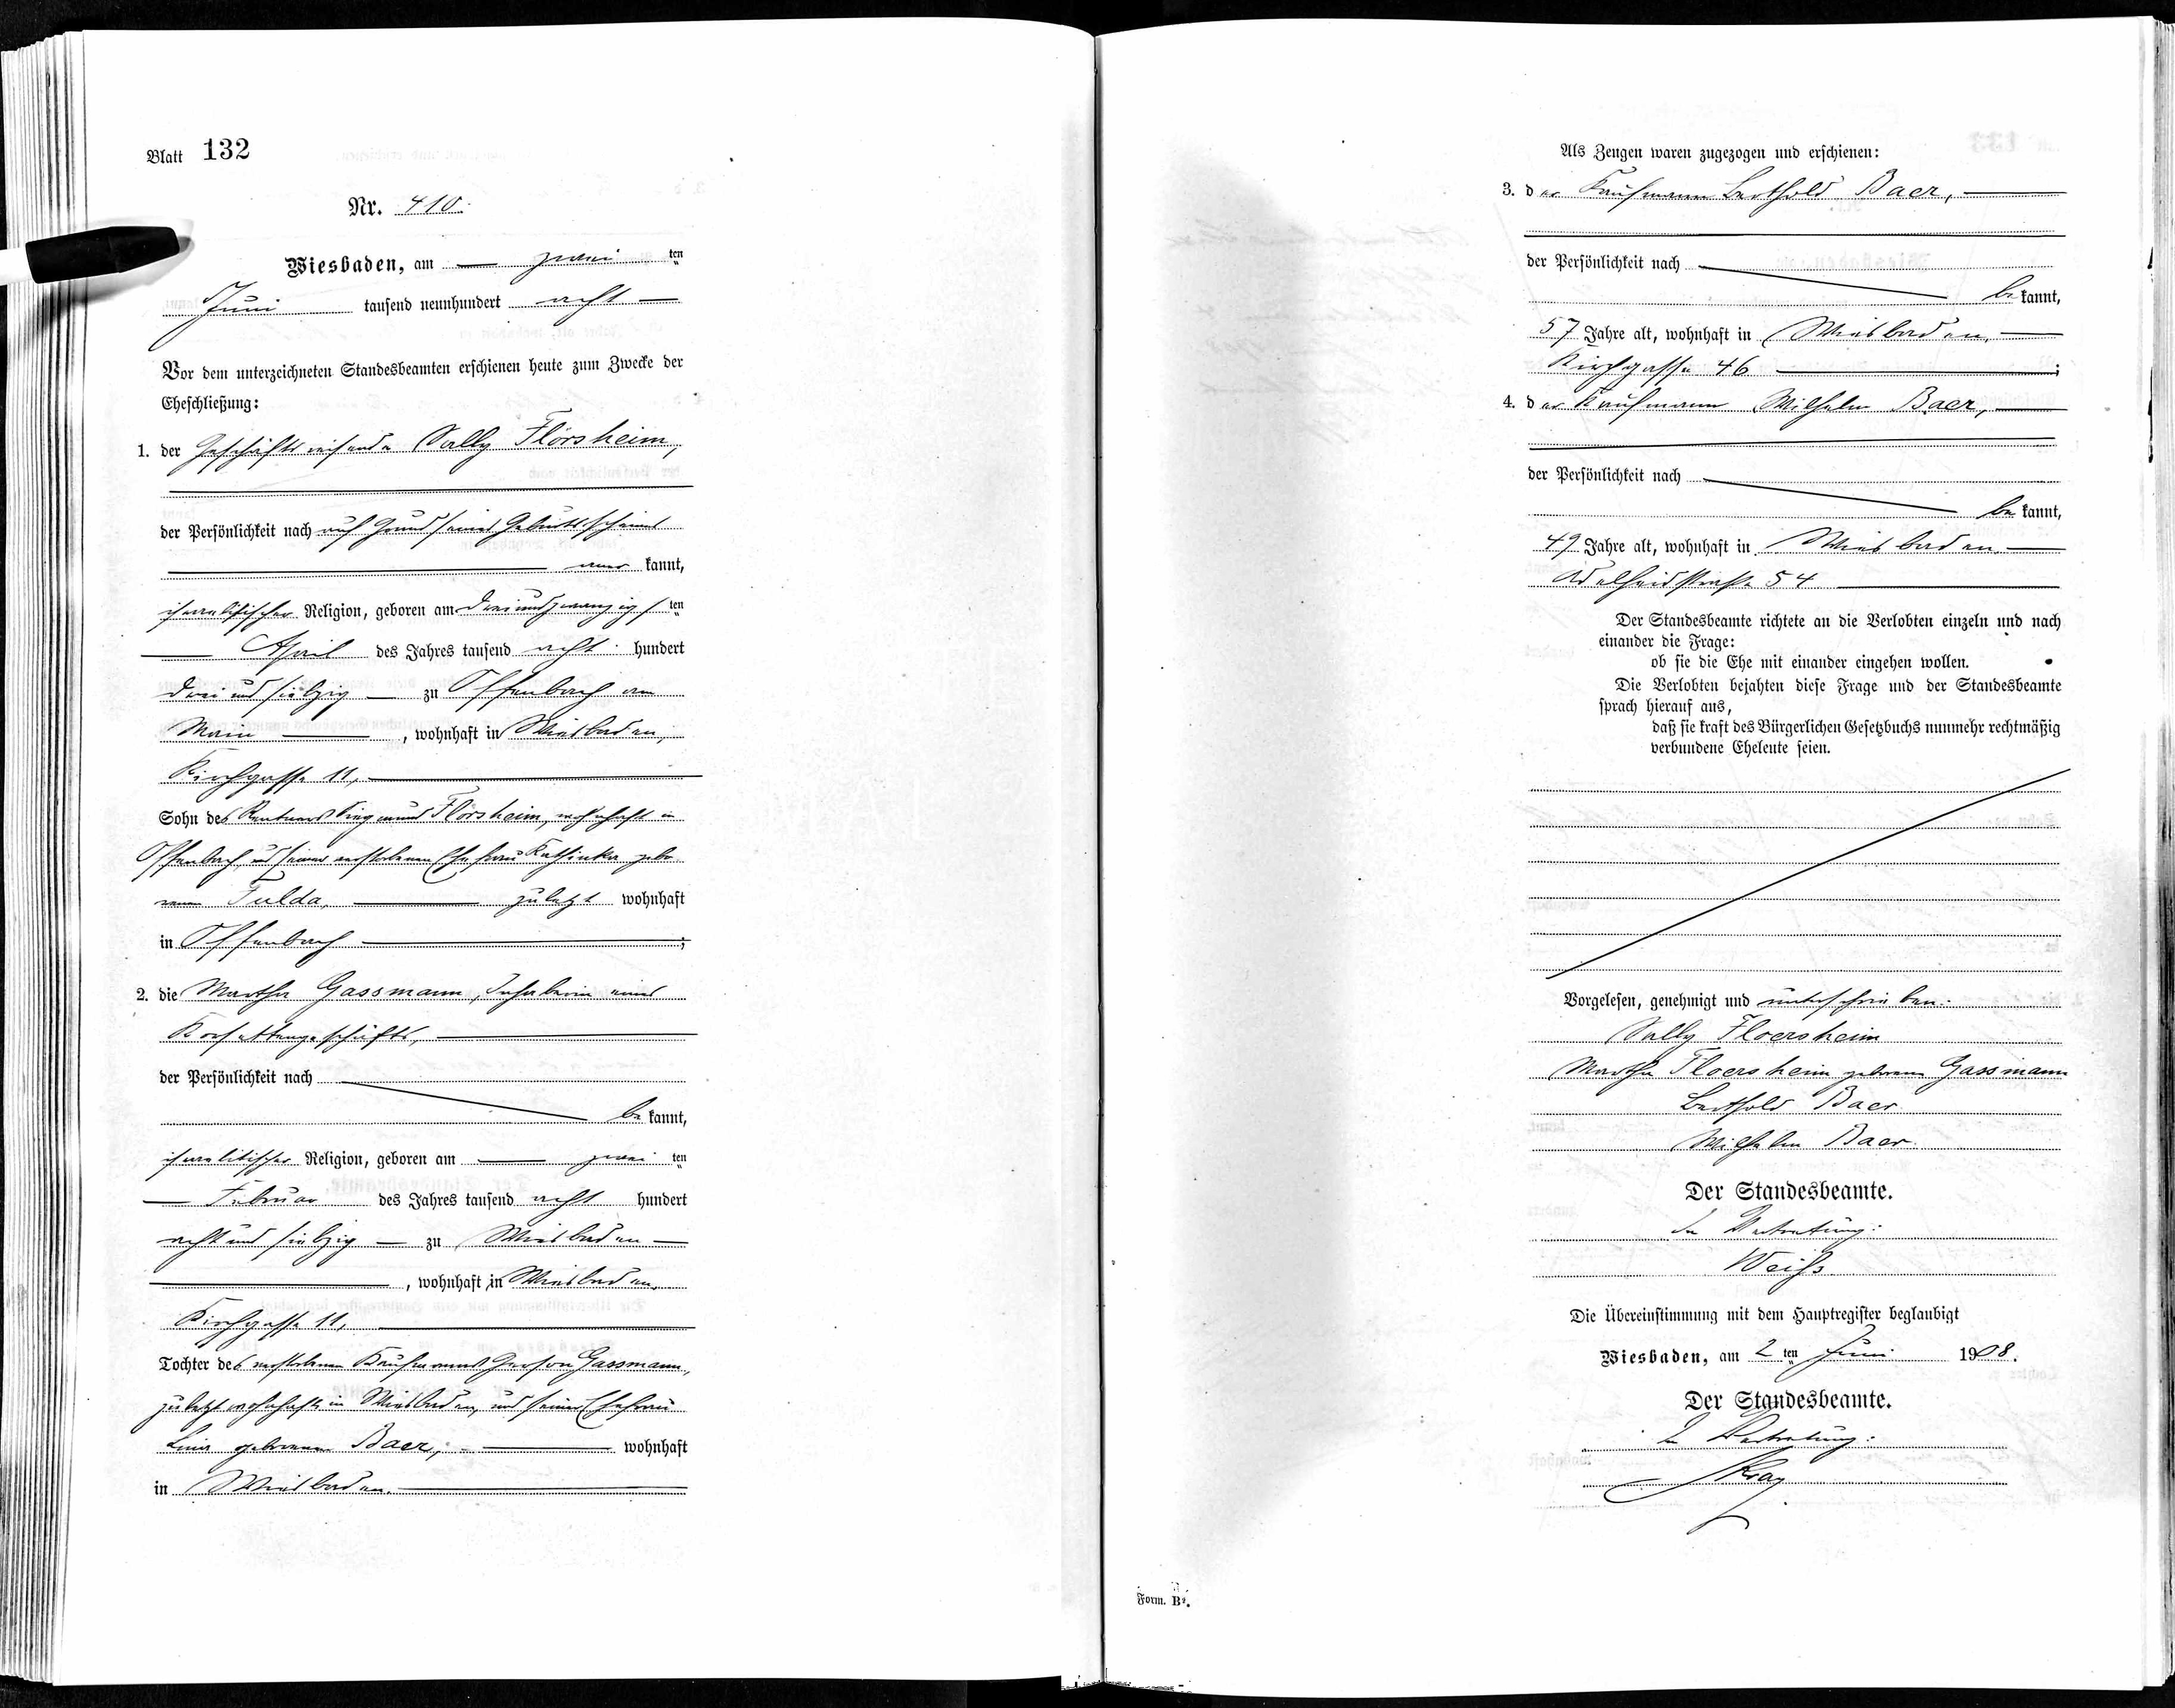 Blatt 132
Nr. 410.
Wiesbaden, am zwei ten
Juni tausend neunhundert acht
Vor dem unterzeichneten Standesbeamten erschienen heute zum Zwecke der
Eheschließung:
1. der Geschäftsreisende Sally Flörsheim,
der Persönlichkeit nach auf Grund seines Geburtsscheines
aner kannt,
israelitischer Religion, geboren am dreiundzwanzigs ten
April des Jahres tausend acht hundert
drei und siebzig zu Offenbach am
Main, wohnhaft in Wiesbaden,
Kirchgasse 11,
Sohn des Rentners Siegmund Flörsheim, wohnhaft in
Offenbach, und seiner verstorbenen Ehefrau Kathinka gebo-
renen Fulda, zuletzt wohnhaft
in Offenbach;
2. die Martha Gassmann, Inhaberin eines
Korsettengeschäfts,
der Persönlichkeit nach
be kannt,
israelitischer Religion, geboren am zwei ten
Februar des Jahres tausend acht hundert
acht und siebzig zu Wiesbaden
, wohnhaft in Wiesbaden,
Kirchgasse 11,
Tochter des verstorbenen Kaufmanns Gerson Gassmann,
zuletzt wohnhaft in Wiesbaden, und seiner Ehefrau
Lina geborenen Baer, wohnhaft
in Wiesbaden.
Als Zeugen waren zugezogen und erschienen:
3. der Kaufmann Berthold Baer,
der Persönlichkeit nach
be kannt,
57 Jahre alt, wohnhaft in Wiesbaden,
Kirchgasse 46;
4. der Kaufmann Wilhelm Baer,
der Persönlichkeit nach
be kannt,
49 Jahre alt, wohnhaft in Wiesbaden,
Adelheidstraße 54
Der Standesbeamte richtete an die Verlobten einzeln und nach
einander die Frage:
ob sie die Ehe mit einander eingehen wollen.
Die Verlobten bejahten diese Frage und der Standesbeamte
sprach hierauf aus,
daß sie kraft des Bürgerlichen Gesetzbuchs nunmehr rechtmäßig
verbundene Eheleute seien.
Vorgelesen, genehmigt und unterschrieben.
Sally Floersheim
Martha Floersheim geborene Gassmann
Berthold Baer
Wilhelm Baer.
Der Standesbeamte.
In Vertretung:
Weiß
Die Übereinstimmung mit dem Hauptregister beglaubigt
Wiesbaden, am 2 ten Juni 1908.
Der Standesbeamte.
In Vertretung:
Form. B².